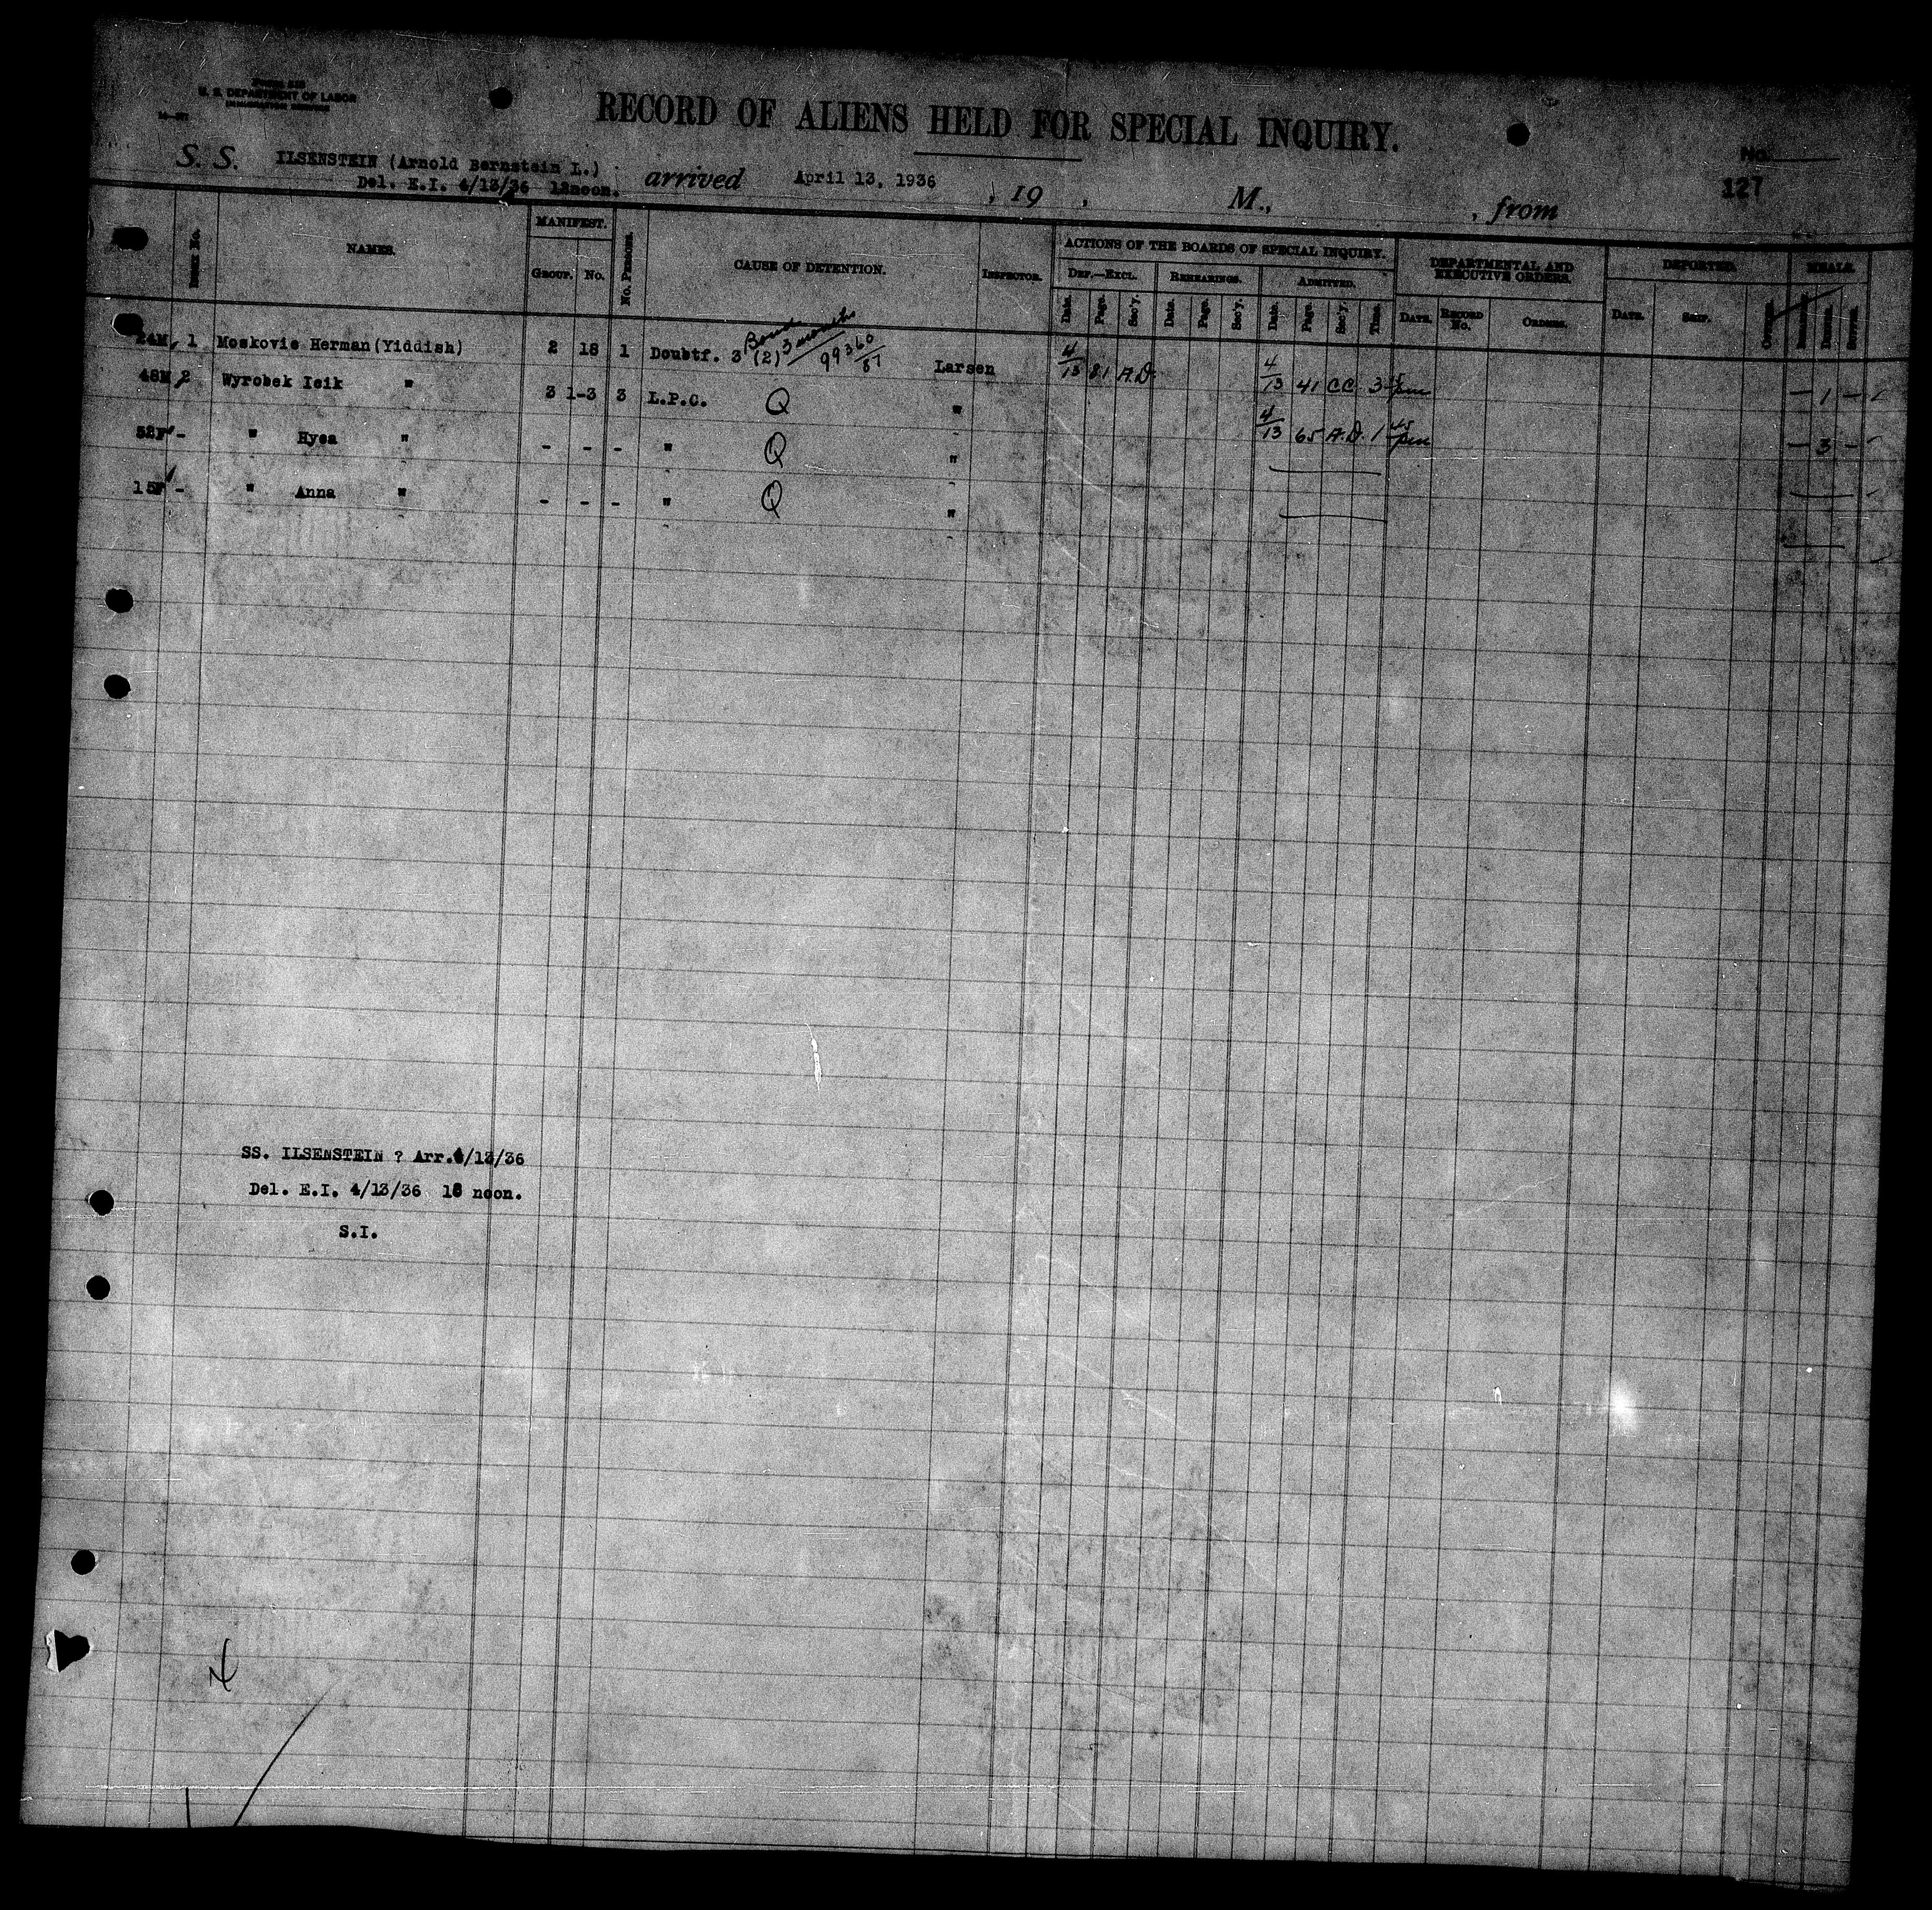 U. S. DEPARTMENT OF LABOR
IMMIGRATION SERVICE
RECORD OF ALIENS HELD FOR SPECIAL INQUIRY.
No.
127
S. S. ILSENSTEIN (Arnold Bernstein L.) arrived April 13, 1936 , 19 , M., , from
Del. E.I. 4/13/36 12noon.
INDEX No. NAMES. MANIFEST. GROUP. No. No. PERSONS. CAUSE OF DETENTION. INSPECTOR. ACTIONS OF THE BOARDS OF SPECIAL INQUIRY. DEPARTMENTAL AND EXECUTIVE ORDERS. DEPORTED. MEALS.
DEF.—EXCL. REHEARINGS. ADMITTED.
Date. Page. Sec'y. Date. Page. Sec'y. Date. Page. Sec'y. Time. DATE. RECORD No. ORDERS. DATE. SHIP. Breakfast. Dinner. Supper.
Bond 3 months
24M 1 Moskovis Herman (Yiddish) 2 18 1 Doubtf. 3 (2) 99360/87 Larsen 4/13 81 A.D. 4/13 41 CC 3 15 pm — 1 —
48M 2 Wyrobek Icik " 3 1-3 3 L.P.C. Q " 4/13 65 A.D. 1 45 pm — 3 —
52F - " Hysa " - - - " Q "
15F - " Anna " - - - " Q "
SS. ILSENSTEIN ? Arr.4/13/36
Del. E.I. 4/13/36 12 noon.
S.I.